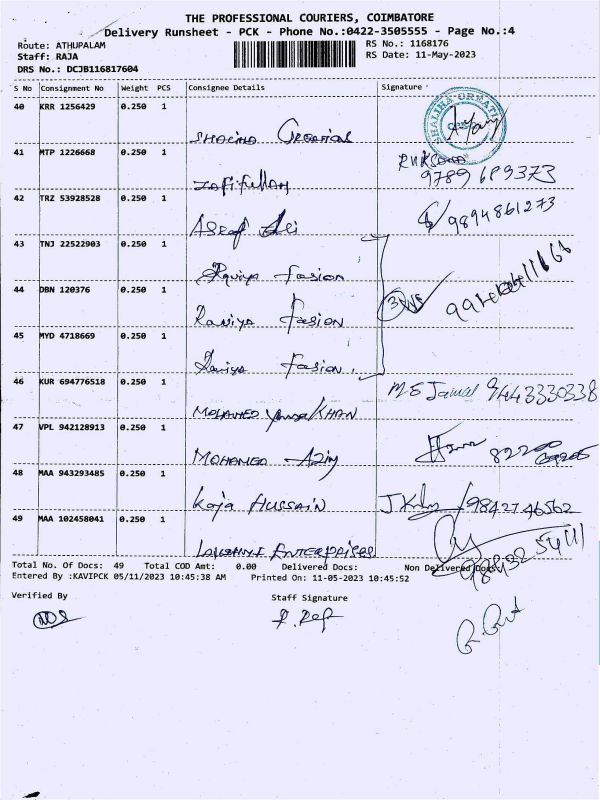 THE PROFESSIONAL COURIERS, COIMBATORE
Delivery Runsheet - PCK - Phone No.:0422-3505555 - Page No.:4
Route: ATHUPALAM
RS No.: 1168176
Staff: RAJA
RS Date: 11-May-2023
DRS No.: DCJB116817604
S No Consignment No Weight PCS Consignee Details Signature
40 KRR 1256429 0.250 1
41 MTP 1226668 0.250 1
9789689373
42 TRZ 53928528 0.250 1
9894861273
Ali
43 TNJ 22522903 0.250 1
Raniya Fasion
44 DBN 120376 0.250 1
Raniya Fasion
45 MYD 4718669 0.250 1
Raniya Fasion
46 KUR 694776518 0.250 1
M.E Jamal 9443330338
MOHAMED KHAN
47 VPL 942128913 0.250 1
MOHAMED Azim
48 MAA 943293485 0.250 1
Koja HUSSAIN
9842746562
49 MAA 102458041 0.250 1
ENTERPRISES
Total No. Of Docs: 49 Total COD Amt: 0.00 Delivered Docs: Non Delivered Docs:
Entered By :KAVIPCK 05/11/2023 10:45:38 AM Printed On: 11-05-2023 10:45:52
Verified By Staff Signature